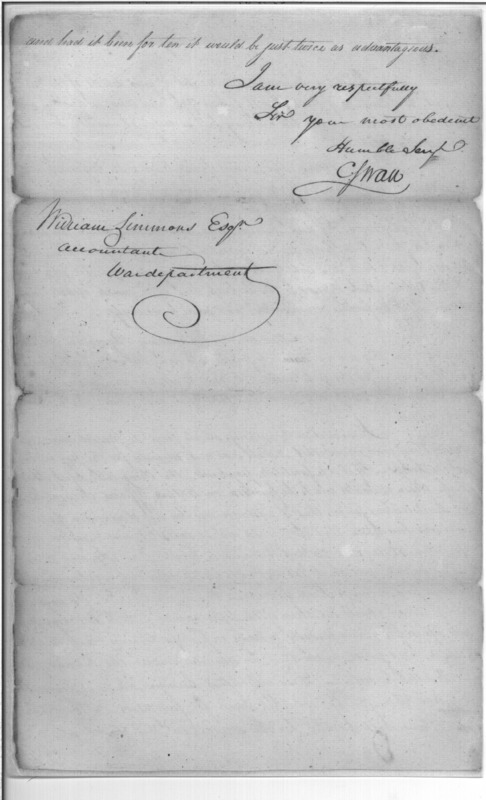 and had it been for ten it would be just twice as advantageous.
I am very respectfully
Sir your most obedient
Humble Servt.
C Swan
William Simmons Esqr.
Accountant
War department